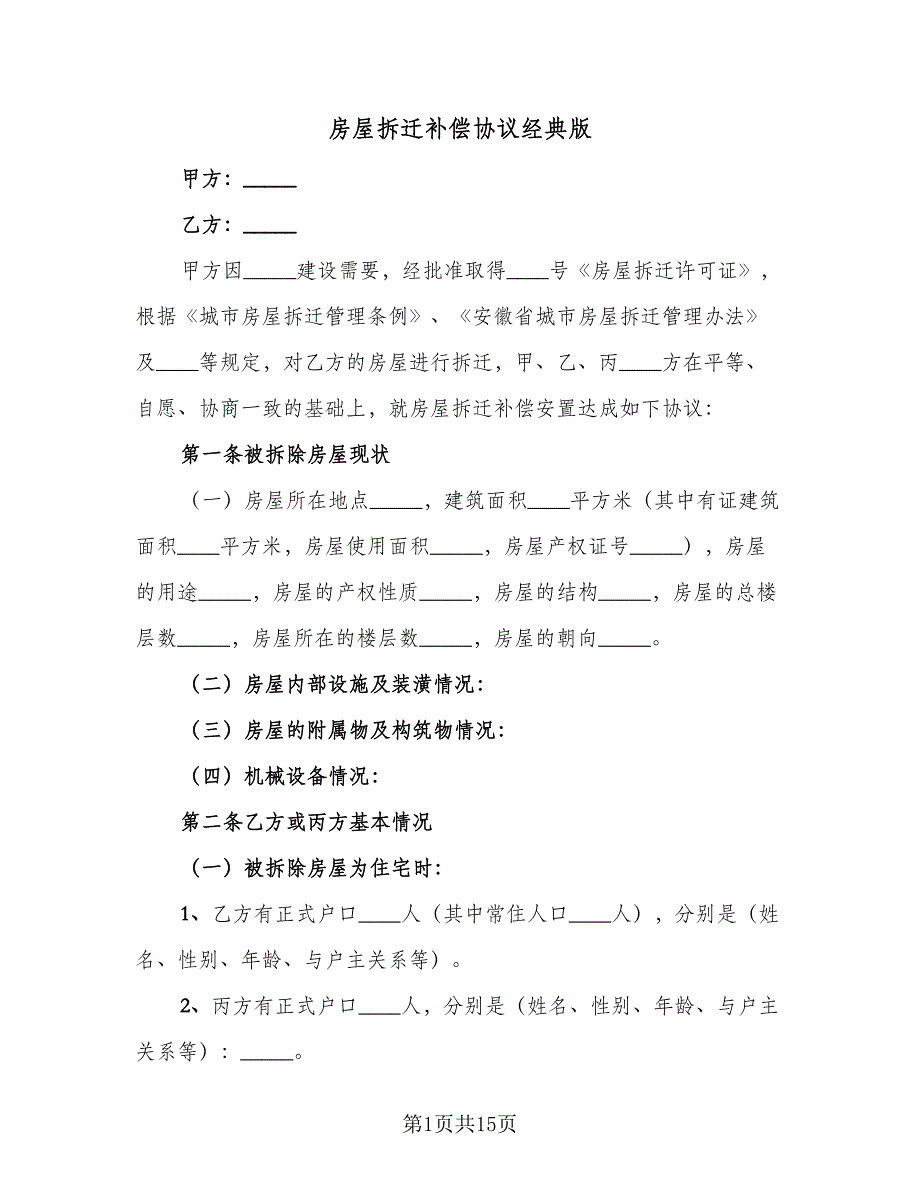 房屋拆迁补偿协议经典版
甲方：_____
乙方：_____
甲方因_____建设需要，经批准取得____号《房屋拆迁许可证》，
根据《城市房屋拆迁管理条例》、《安徽省城市房屋拆迁管理办法》
及____等规定，对乙方的房屋进行拆迁，甲、乙、丙____方在平等、
自愿、协商一致的基础上，就房屋拆迁补偿安置达成如下协议：
第一条被拆除房屋现状
（一）房屋所在地点_____，建筑面积____平方米（其中有证建筑
面积____平方米，房屋使用面积_____，房屋产权证号_____），房屋
的用途_____，房屋的产权性质_____，房屋的结构_____，房屋的总楼
层数_____，房屋所在的楼层数_____，房屋的朝向_____。
（二）房屋内部设施及装潢情况：
（三）房屋的附属物及构筑物情况：
（四）机械设备情况：
第二条乙方或丙方基本情况
（一）被拆除房屋为住宅时：
1、乙方有正式户口____人（其中常住人口____人），分别是（姓
名、性别、年龄、与户主关系等）。
2、丙方有正式户口____人，分别是（姓名、性别、年龄、与户主
关系等）：_____。
第1页共15页